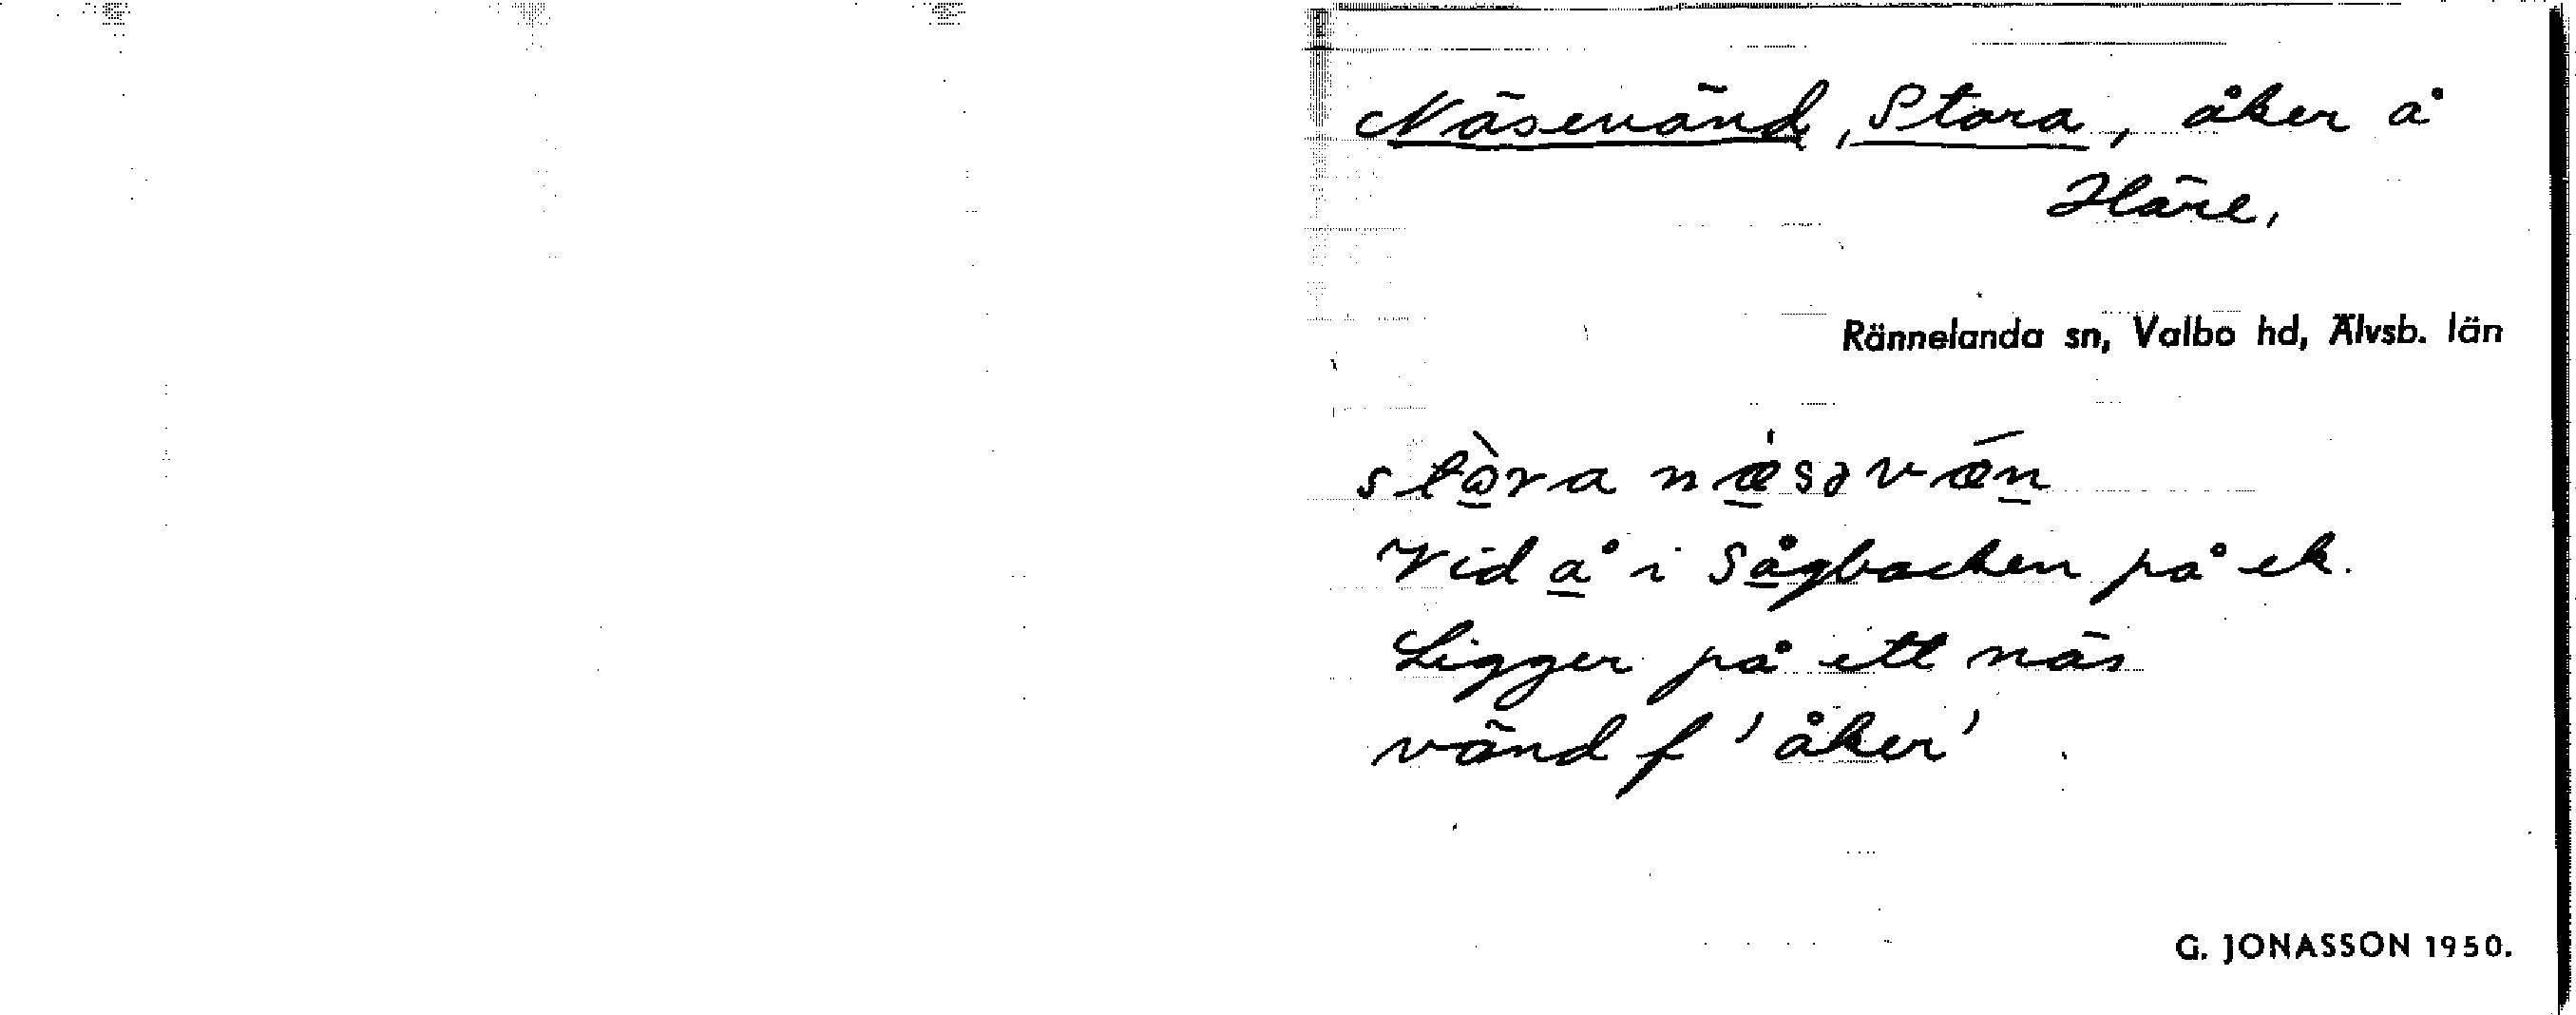 Näsevänd, Stora, åker å
Häre,
Rännelanda sn, Valbo hd, Älvsb. län
stòra næ̀səvǽn
Vid å i Sågbacken på ek.
Ligger på ett näs
vänd f 'åker'
G. JONASSON 1950.